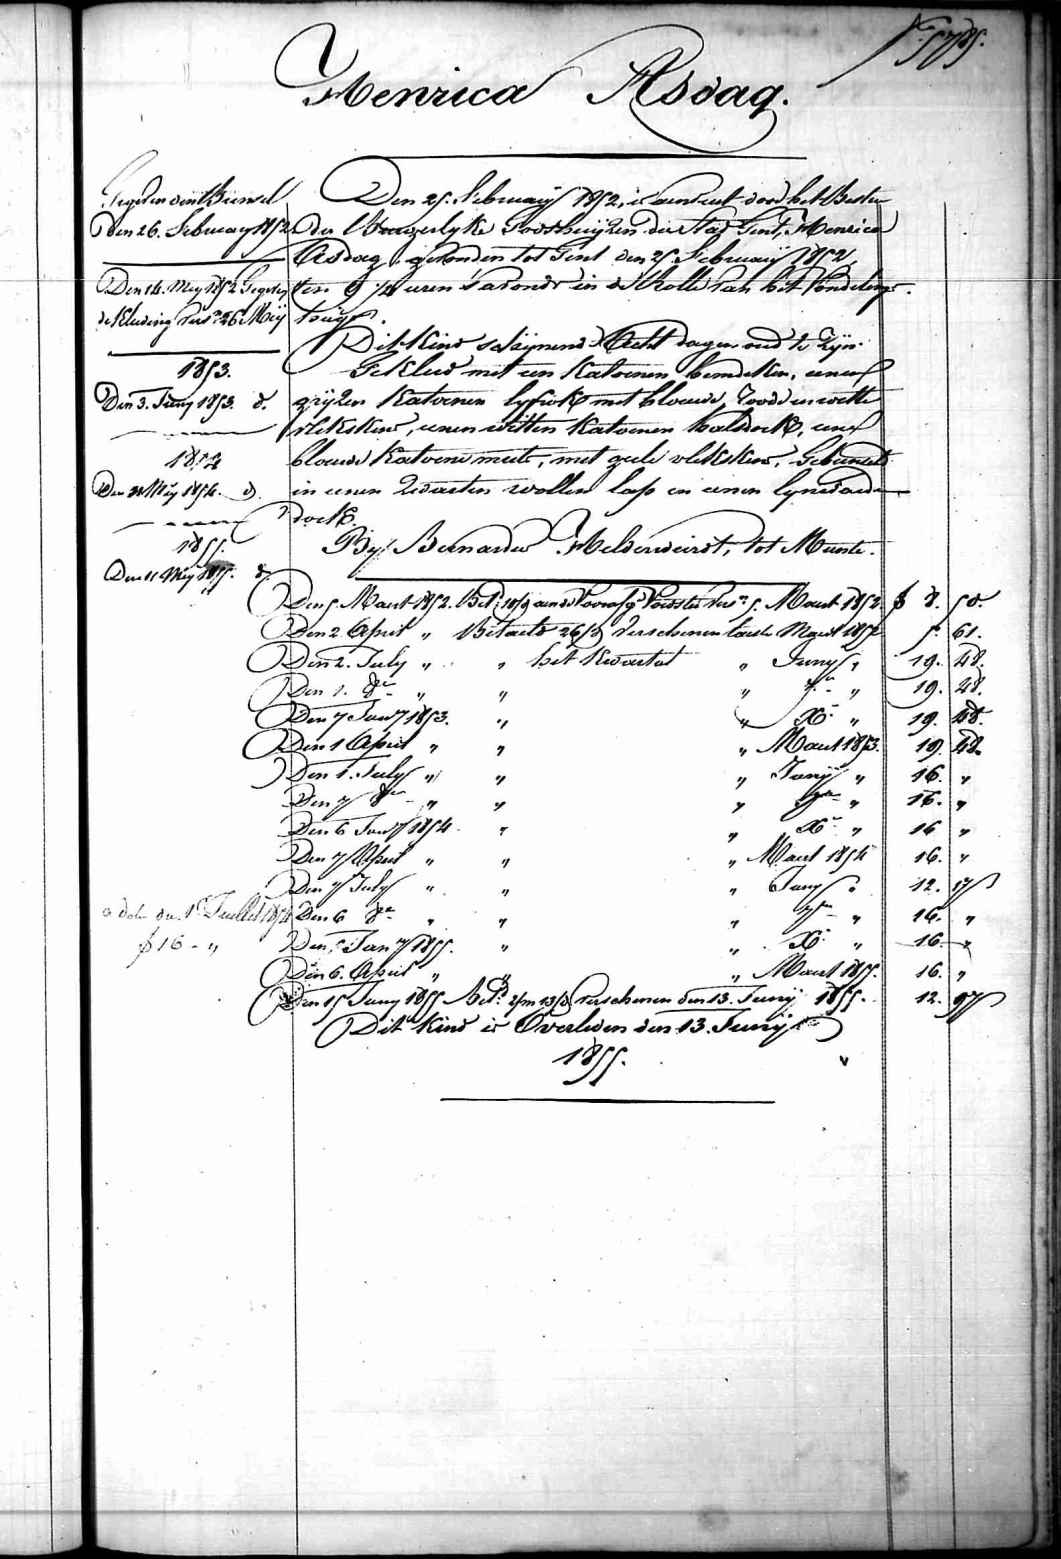 N.° 5785.
Henrica Asdag.
Gegeven den Bussel
Den 26. February 1852
Den 14. Mey 1852 Gegeven
de Kleeding vers.n 26 Meij
1853.
Den 3. Juny 1853. d.
1854
Den 31 Meÿ 1854. d.
1855.
Den 11 Meÿ 1855. d.
Den 25. February 1852, is aenveert door het Bestier
der Burgerlyke Godshuyzen der Stad Gent, Henrica
Asdag, gevonden tot Gent den 25 February 1852
ten 9 ¼ uren s'avonds in de Rolle van het Vondeling-
huys.
Dit Kind schynende Acht dagen oud te Zyn.
Gekleed met een katoenen hemdeken, eenen
gryzen katoenen lyfrok met blauwe, roode en witte
vlekskens, eenen witten katoenen halsdoek, eene
blauwe katoene mute, met geele vlekskens, Gebunseld
in eenen Zwarten wollen lap en eenen lynwaden
doek.
By Bernardus Helderweirdt, tot Munte.
Den 5 Maert 1852. Bet. 10/d aen de Voorafg.e Voedster vers.n 5. Maert 1852. f 8. 58.
Den 2. April " Betaelt 26/d verschenen laeste Maert 1852 5. 61.
Den 2. July " " het Kwartal " Juny " 19. 48.
Den 1. 8.re " " " 7.re " 19. 48.
Den 7 Jan.y 1853. " " X.re " 19. 48.
Den 1 April " " " Maert 1853. 19. 48.
Den 1. July " " " Junÿ " 16. "
Den 7 8.re " " " 7.re " 16. "
Den 6 Jan.y 1854. " " X.re " 16 "
Den 7 April " " " Maert 1854 16. "
Den 7 July " " " Juny " 12. 57
a dat. du 1.r Juillet 1854
f 16 - "
Den 6 8.re " " " 7.re " 16. "
Den 5 Jan.y 1855. " " X.re " 16. "
Den 6. April " " " Maert 1855. 16. "
Den 15 Juny 1855 Bet.d 2/m 13/d verschenen den 13. Junÿ 1855. 12. 97
Dit Kind is Overleden den 13. Junÿ
1855.